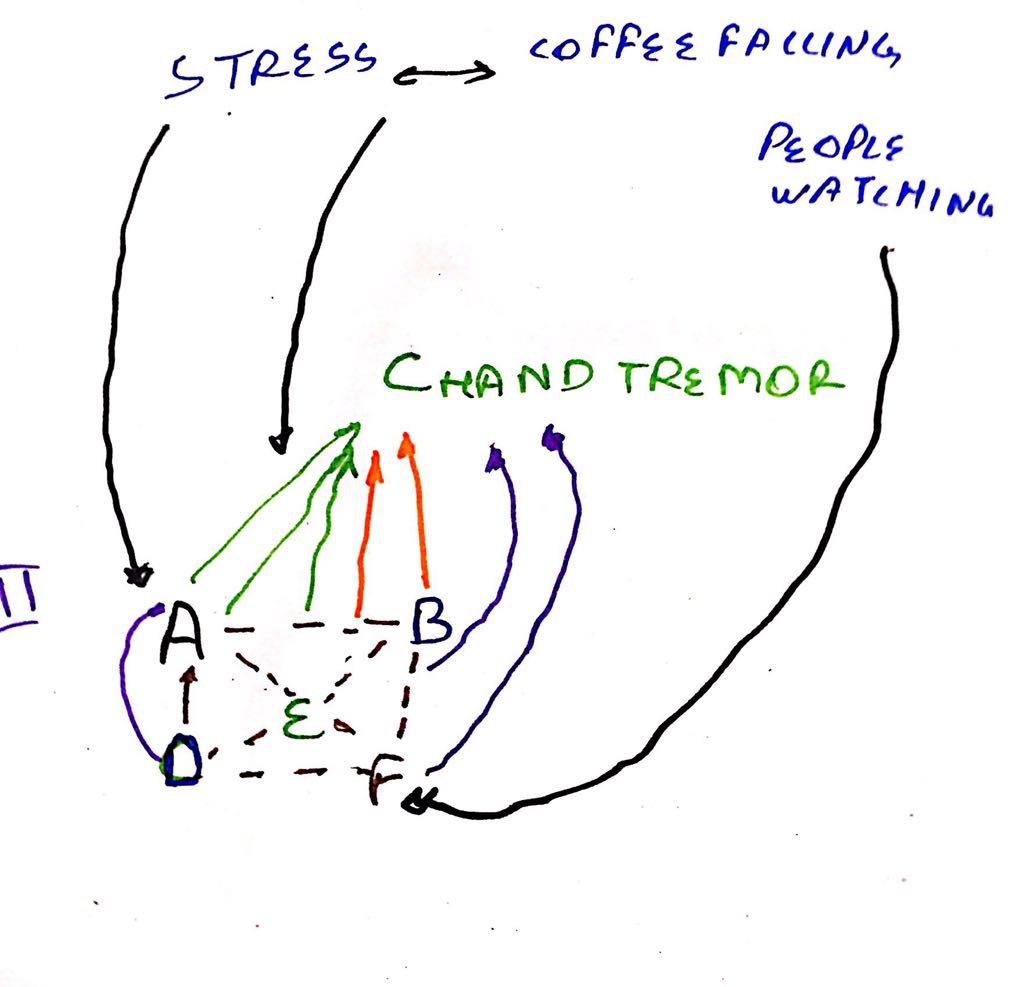 STRESS COFFEE FALLING
PEOPLE
WATCHING
C HAND TREMOR
II
A B
E
D F